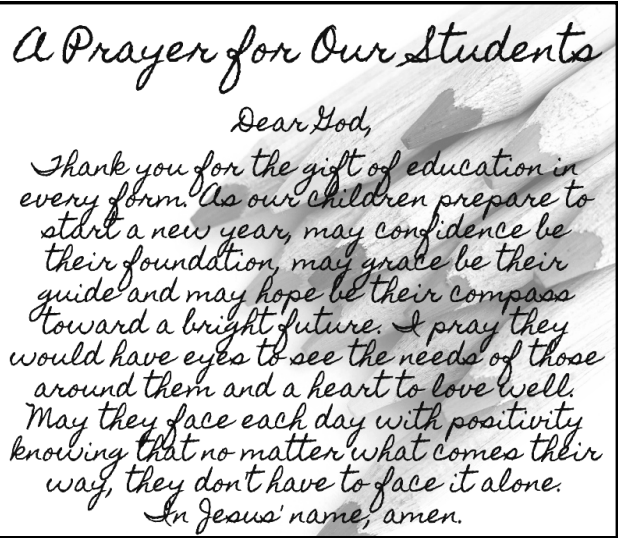 A Prayer for Our Students
Dear God,
Thank you for the gift of education in
every form. As our children prepare to
start a new year, may confidence be
their foundation, may grace be their
guide and may hope be their compass
toward a bright future. I pray they
would have eyes to see the needs of those
around them and a heart to love well.
May they face each day with positivity
knowing that no matter what comes their
way, they don't have to face it alone.
In Jesus' name, amen.